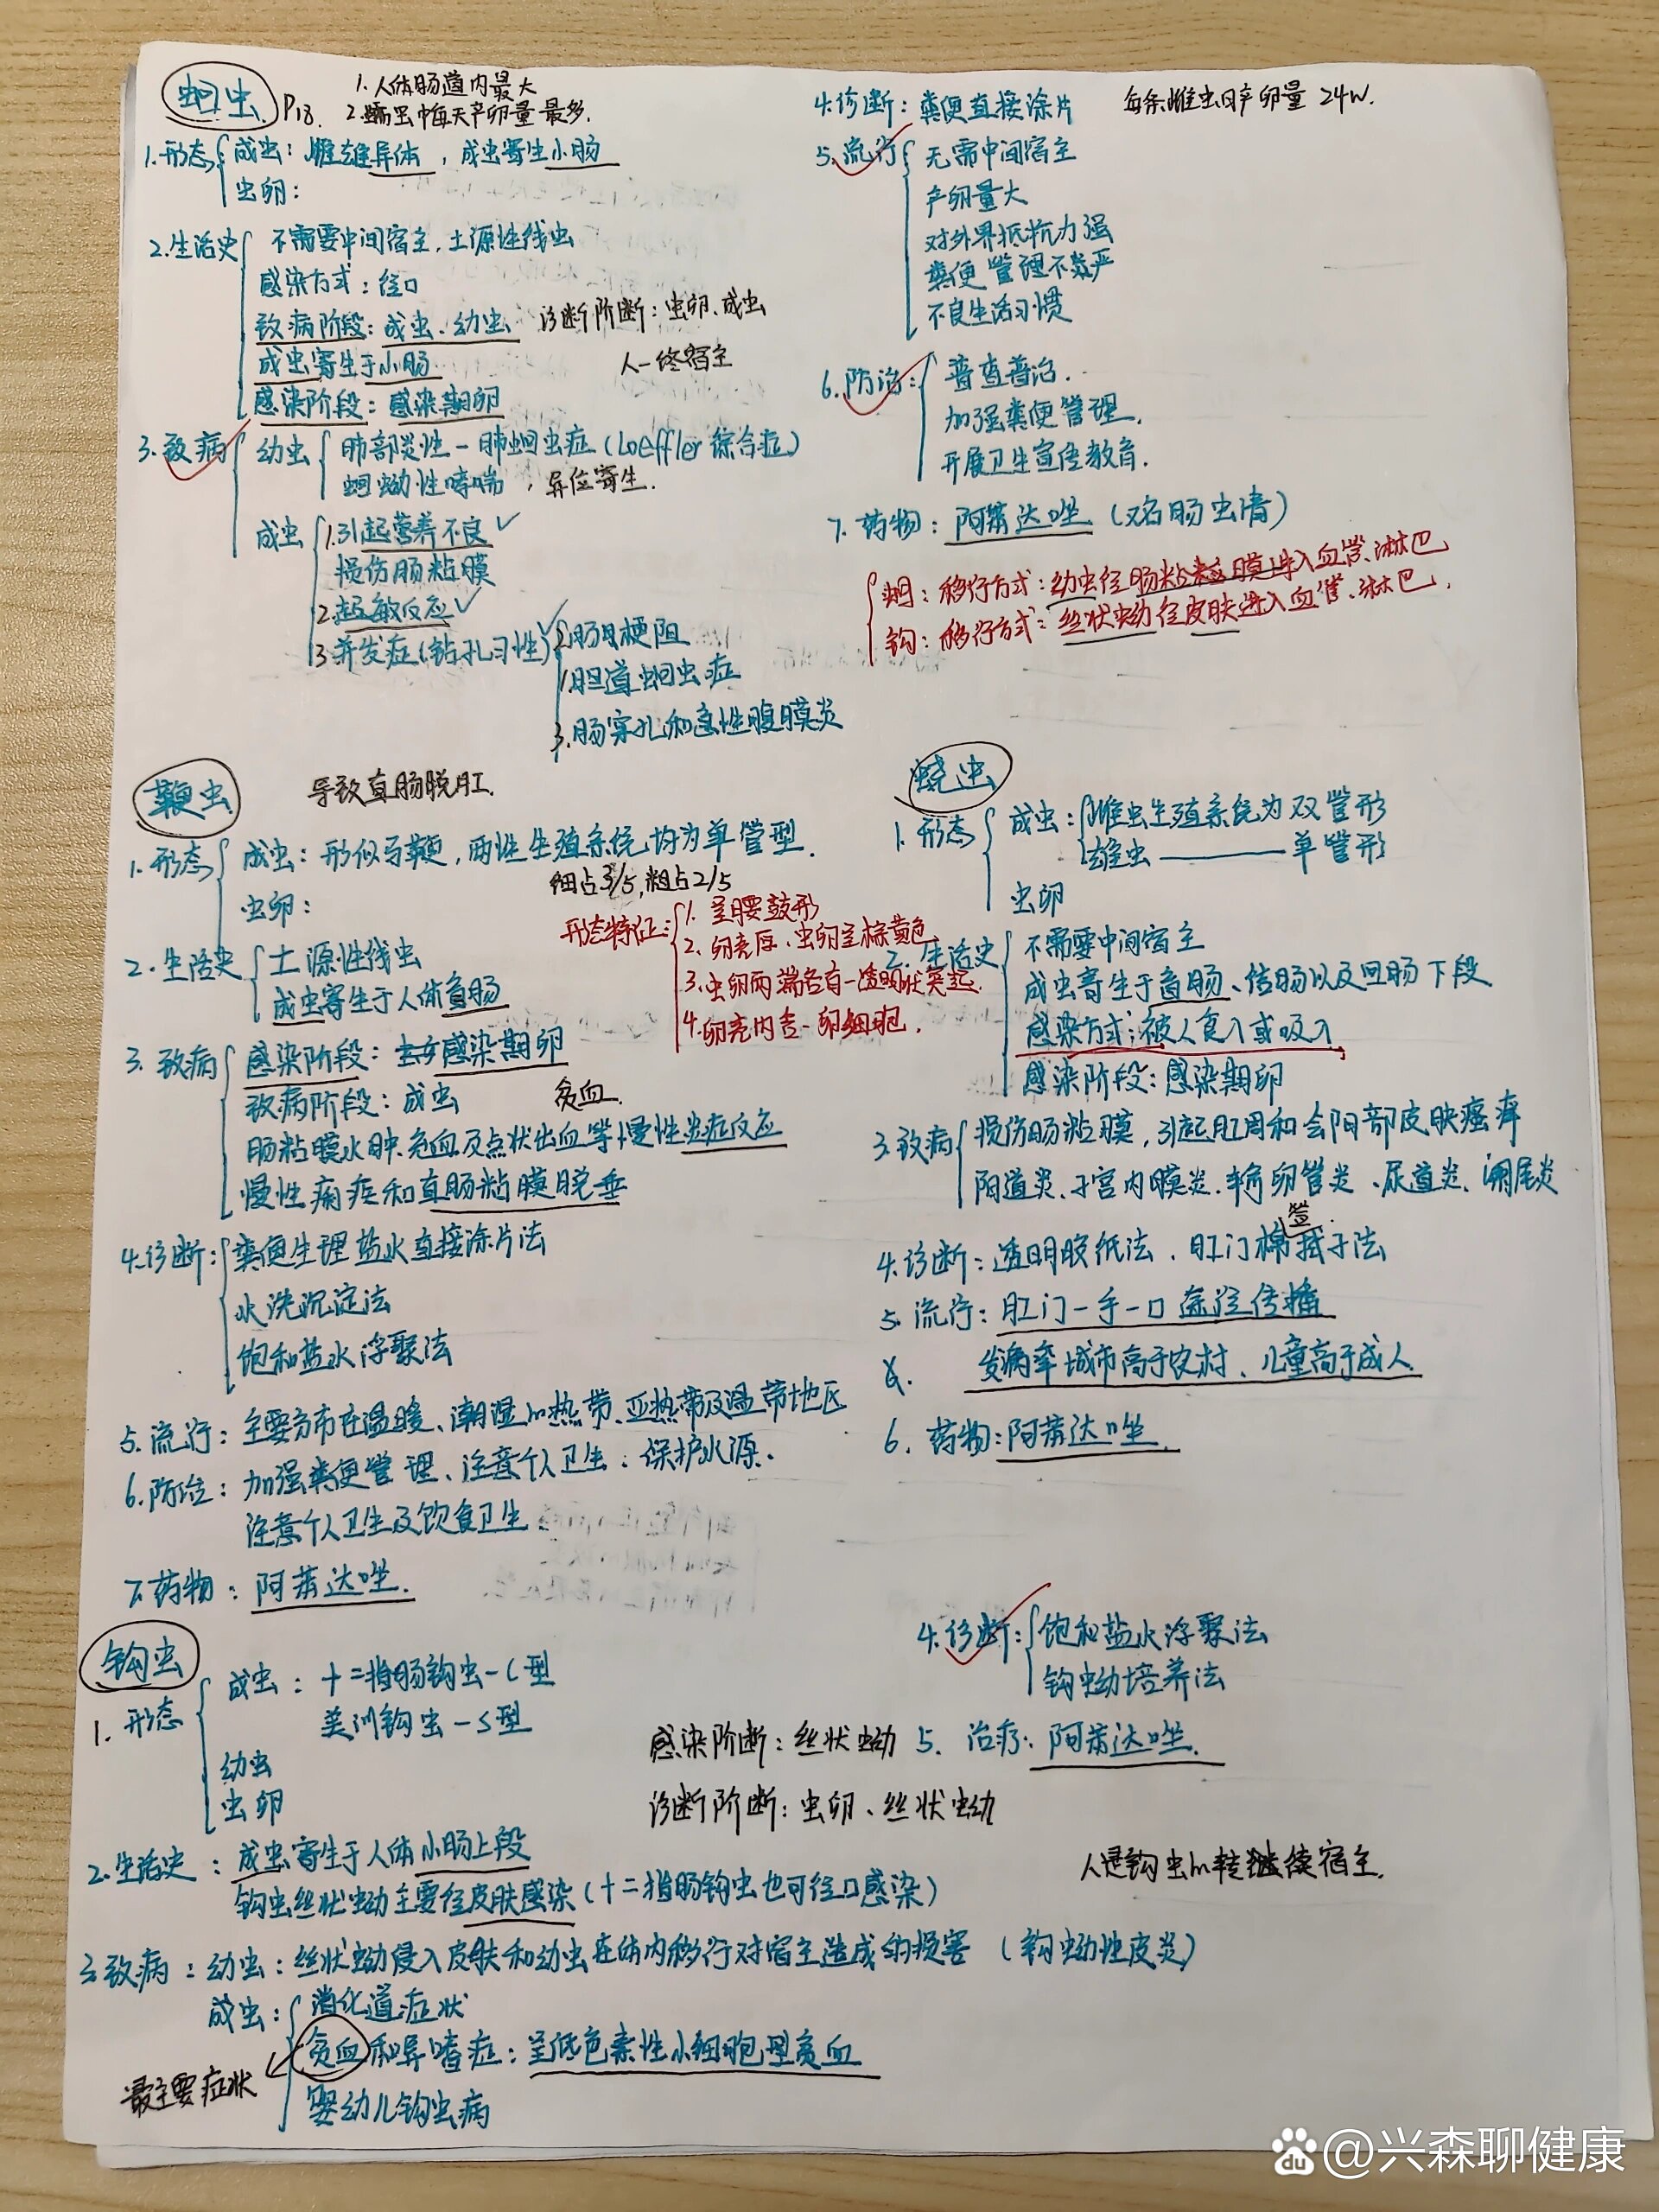 蛔虫 P18.
1.人体肠道内最大
2.蠕虫中每天产卵量最多.
1.形态 成虫：雌雄异体，成虫寄生小肠
虫卵：
2.生活史 不需要中间宿主，土源性线虫
感染方式：经口
致病阶段：成虫、幼虫 诊断阶断：虫卵、成虫
成虫寄生于小肠 人—终宿主
感染阶段：感染期卵
3.致病 幼虫 肺部炎性—肺蛔虫症(Loeffler综合症)
蛔蚴性哮喘，异位寄生.
成虫 1.引起营养不良✓
损伤肠粘膜
2.超敏反应✓
3并发症(钻孔习性)✓ 2肠梗阻
1胆道蛔虫症
3.肠穿孔和急性腹膜炎
4.诊断：粪便直接涂片 每条雌虫日产卵量24W.
5.流行 无需中间宿主
产卵量大
对外界抵抗力强
粪便管理不严
不良生活习惯
6.防治： 普查普治.
加强粪便管理.
开展卫生宣传教育.
7.药物：阿苯达唑(又名肠虫清)
蛔：移行方式：幼虫经肠粘膜进入血管、淋巴
钩：移行方式：丝状蚴经皮肤进入血管、淋巴.
鞭虫 导致直肠脱肛.
1.形态 成虫：形似马鞭，两性生殖系统均为单管型.
细占3/5,粗占2/5
虫卵：
形态特征： 1.呈腰鼓形
2.卵壳厚、虫卵呈棕黄色
3.虫卵两端各有一透明状突起.
4.卵壳内含一卵细胞.
2.生活史 土源性线虫
成虫寄生于人体盲肠
3.致病 感染阶段：感染期卵
致病阶段：成虫 贫血.
肠粘膜水肿.充血及点状出血等慢性炎症反应
慢性痢疾和直肠粘膜脱垂
4.诊断： 粪便生理盐水直接涂片法
水洗沉淀法
饱和盐水浮聚法
5.流行：主要分布在温暖、潮湿的热带、亚热带及温带地区
6.防治：加强粪便管理、注意个人卫生：保护水源.
注意个人卫生及饮食卫生.
7.药物：阿苯达唑.
蛲虫
1.形态 成虫： 雌虫生殖系统为双管形
雄虫———单管形
虫卵
2.生活史 不需要中间宿主
成虫寄生于盲肠、结肠以及回肠下段
感染方式：被人食入或吸入
感染阶段：感染期卵
3.致病 损伤肠粘膜，引起肛周和会阴部皮肤瘙痒
阴道炎.子宫内膜炎.输卵管炎、尿道炎、阑尾炎
4.诊断：透明胶纸法、肛门棉签拭子法
5.流行：肛门—手—口途径传播
发病率城市高于农村、儿童高于成人.
6.药物：阿苯达唑.
钩虫
1.形态 成虫：十二指肠钩虫—C型
美洲钩虫—S型
幼虫
虫卵
感染阶断：丝状蚴
诊断阶断：虫卵、丝状蚴
2.生活史：成虫寄生于人体小肠上段
钩虫丝状蚴主要经皮肤感染(十二指肠钩虫也可经口感染)
人是钩虫的转继续宿主.
3.致病：幼虫：丝状蚴侵入皮肤和幼虫在体内移行对宿主造成的损害(钩蚴性皮炎)
成虫： 消化道症状
贫血和异嗜症：呈低色素性小细胞型贫血
最主要症状
婴幼儿钩虫病
4.诊断： 饱和盐水浮聚法
钩蚴培养法
5.治疗：阿苯达唑.
du @兴森聊健康